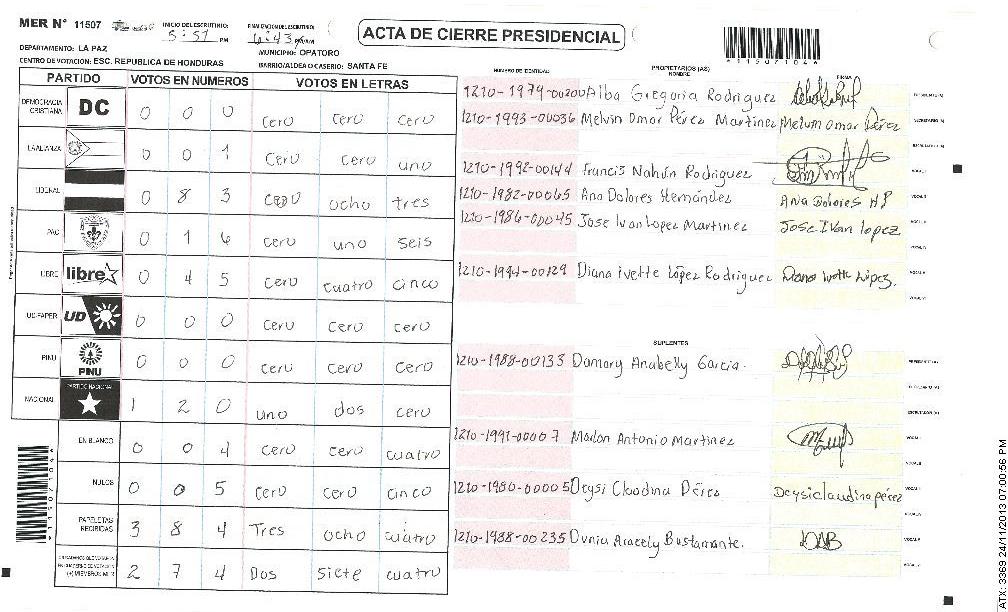 MER N° 11507
INICIO DEL ESCRUTINIO: 5:57 PM
FINALIZACION DEL ESCRUTINIO: 6:43 P.M
ACTA DE CIERRE PRESIDENCIAL
*11507104*
DEPARTAMENTO: LA PAZ
MUNICIPIO: OPATORO
CENTRO DE VOTACION: ESC. REPUBLICA DE HONDURAS
BARRIO/ALDEA O CASERIO: SANTA FE
PARTIDO VOTOS EN NUMEROS VOTOS EN LETRAS
DEMOCRACIA CRISTIANA DC 0 0 0 cero cero cero
LA ALIANZA 0 0 1 cero cero uno
LIBERAL 0 8 3 cero ocho tres
PAC 0 1 6 cero uno seis
LIBRE libre 0 4 5 cero cuatro cinco
UD-FAPER UD 0 0 0 cero cero cero
PINU PINU 0 0 0 cero cero cero
NACIONAL PARTIDO NACIONAL 1 2 0 uno dos cero
EN BLANCO 0 0 4 cero cero cuatro
NULOS 0 0 5 cero cero cinco
PAPELETAS RECIBIDAS 3 8 4 Tres ocho cuatro
CIUDADANOS QUE VOTARON EN CUADERNO DE VOTACION (+) MIEMBROS MER 2 7 4 Dos siete cuatro
*11507104*
NUMERO DE IDENTIDAD PROPIETARIOS (AS) NOMBRE FIRMA
1210-1979-00200 Alba Gregoria Rodriguez PRESIDENTE (A)
1210-1993-00036 Melvin Omar Pérez Martinez Melvin omar Pérez SECRETARIO (A)
ESCRUTADOR (A)
1210-1992-00144 Francis Nahún Rodriguez VOCAL I
1210-1982-00065 Ana Dolores Hernández Ana Dolores HP
1210-1986-00045 Jose Ivan Lopez Martinez Jose Ivan lopez
1210-1994-00129 Diana ivette López Rodriguez Diana Ivette López.
SUPLENTES
1210-1988-00133 Damary Anabelly Garcia.
1210-1991-00007 Marlon Antonio Martinez
1210-1980-00005 Deysi Claudina Pérez Deysi claudina pérez
1210-1988-00235 Dunia Aracely Bustamante. DAB
ATX: 3369 24/11/2013 07:00:56 PM